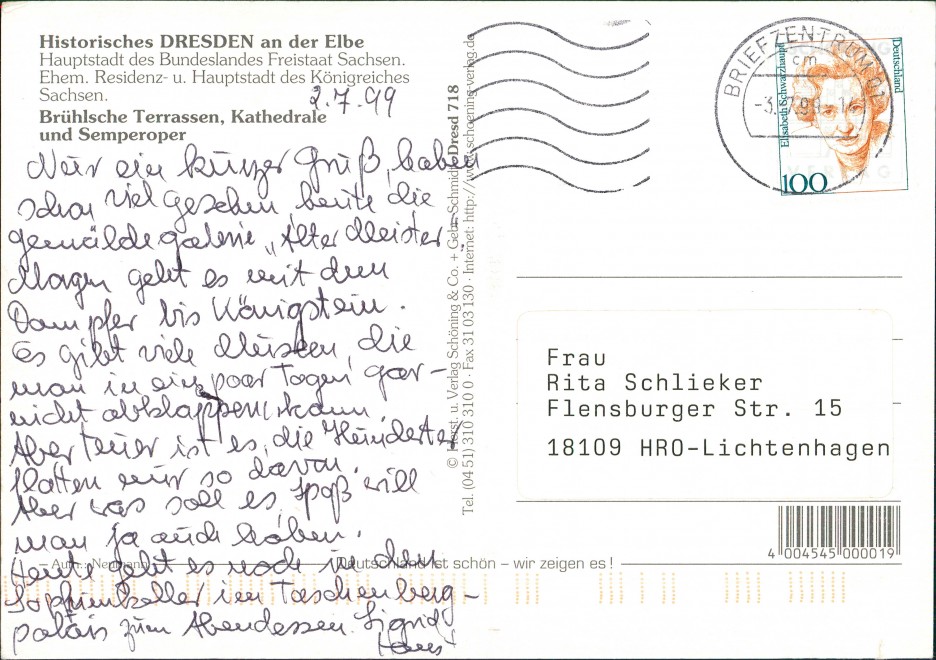 Historisches DRESDEN an der Elbe
Hauptstadt des Bundeslandes Freistaat Sachsen.
Ehem. Residenz- u. Hauptstadt des Königreiches
Sachsen.
2.7.99
Brühlsche Terrassen, Kathedrale
und Semperoper
Nur ein kurzer Gruß, haben
schon viel gesehen, heute die
Gemäldegalerie „Alter Meister“.
Morgen geht es mit dem
Dampfer bis Königstein.
Es gibt viele Museen, die
man in ein paar Tagen gar-
nicht abklappern kann.
Aber teuer ist es, die Hunderter
flattern nur so davon.
Aber was soll es, Spaß will
man ja auch haben.
Heute geht es noch in den
Sophienkeller im Taschenberg-
palais zum Abendessen. Sigrid
Hans
– Aufn.: Neumann
Deutschland ist schön – wir zeigen es !
© Horst u. Verlag Schöning & Co. + Gebr. Schmidt Dresd 718
Tel. (04 51) 310 310 0 · Fax 31 03 130 · Internet: http://www.schoening-verlag.de
BRIEFZENTRUM 01
cm
-3.7.99-14
Elisabeth Schwarzhaupt
Deutschland
100
Frau
Rita Schlieker
Flensburger Str. 15
18109 HRO-Lichtenhagen
4 004545 000019